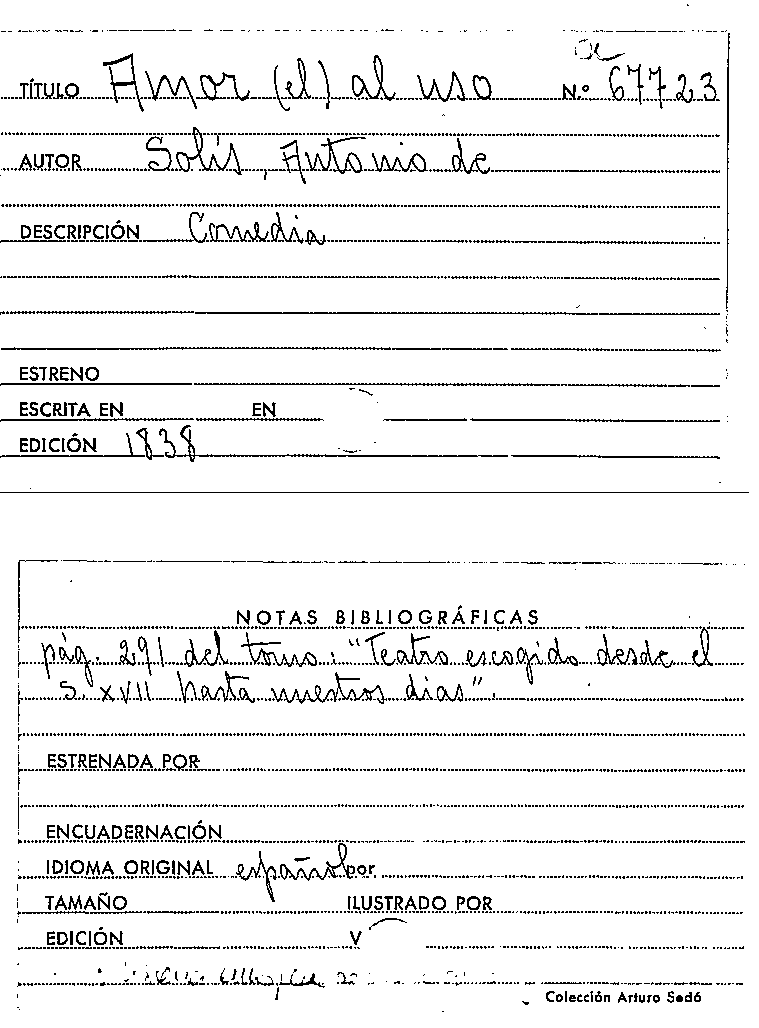 TÍTULO Amor (el) al uso N.º 67723
AUTOR Solís, Antonio de
DESCRIPCIÓN Comedia
ESTRENO
ESCRITA EN EN
EDICIÓN 1838
NOTAS BIBLIOGRÁFICAS
pág. 291 del tomo: "Teatro escogido desde el
S. XVII hasta nuestros dias".
ESTRENADA POR
ENCUADERNACIÓN
IDIOMA ORIGINAL español por
TAMAÑO ILUSTRADO POR
EDICIÓN V
Colección Arturo Sedó